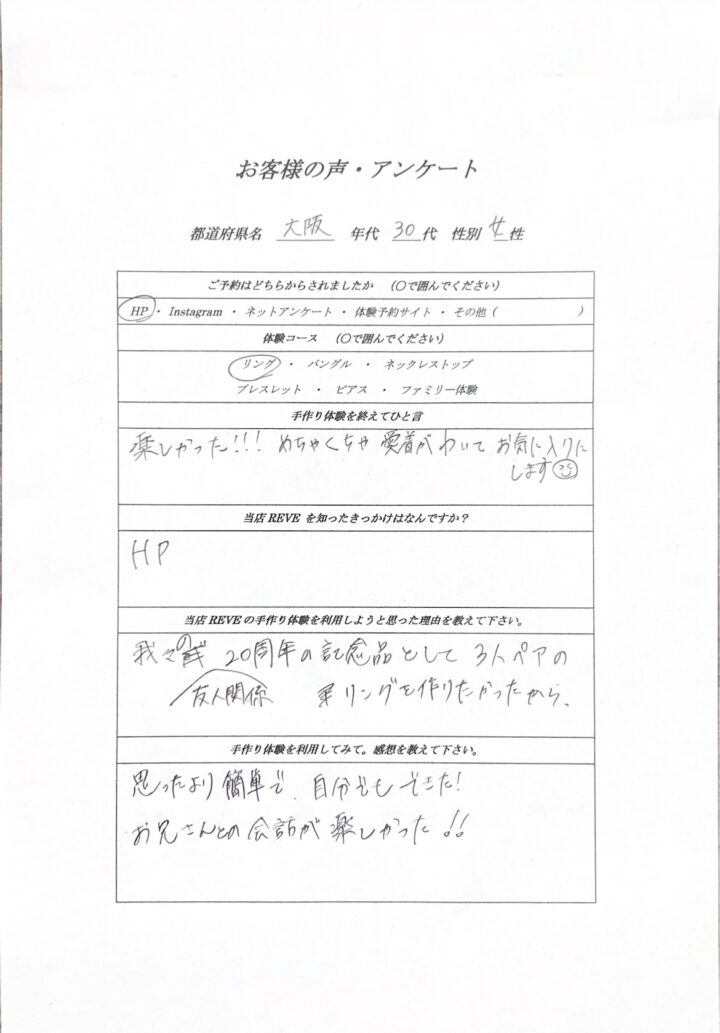 お客様の声・アンケート
都道府県名 大阪 年代 30代 性別 女性
ご予約はどちらからされましたか （〇で囲んでください）
HP・ Instagram ・ ネットアンケート ・ 体験予約サイト ・ その他（ ）
体験コース （〇で囲んでください）
リング ・ バングル ・ ネックレストップ
ブレスレット ・ ピアス ・ ファミリー体験
手作り体験を終えてひと言
楽しかった!!! めちゃくちゃ愛着がわいて お気に入りに
します
当店 REVE を知ったきっかけはなんですか？
HP
当店 REVE の手作り体験を利用しようと思った理由を教えて下さい。
我々の 20周年の記念品として 3人ペアの
友人関係 リングを作りたかったから、
手作り体験を利用してみて。感想を教えて下さい。
思ったより簡単で、自分でもできた!
お兄さんとの会話が楽しかった!!